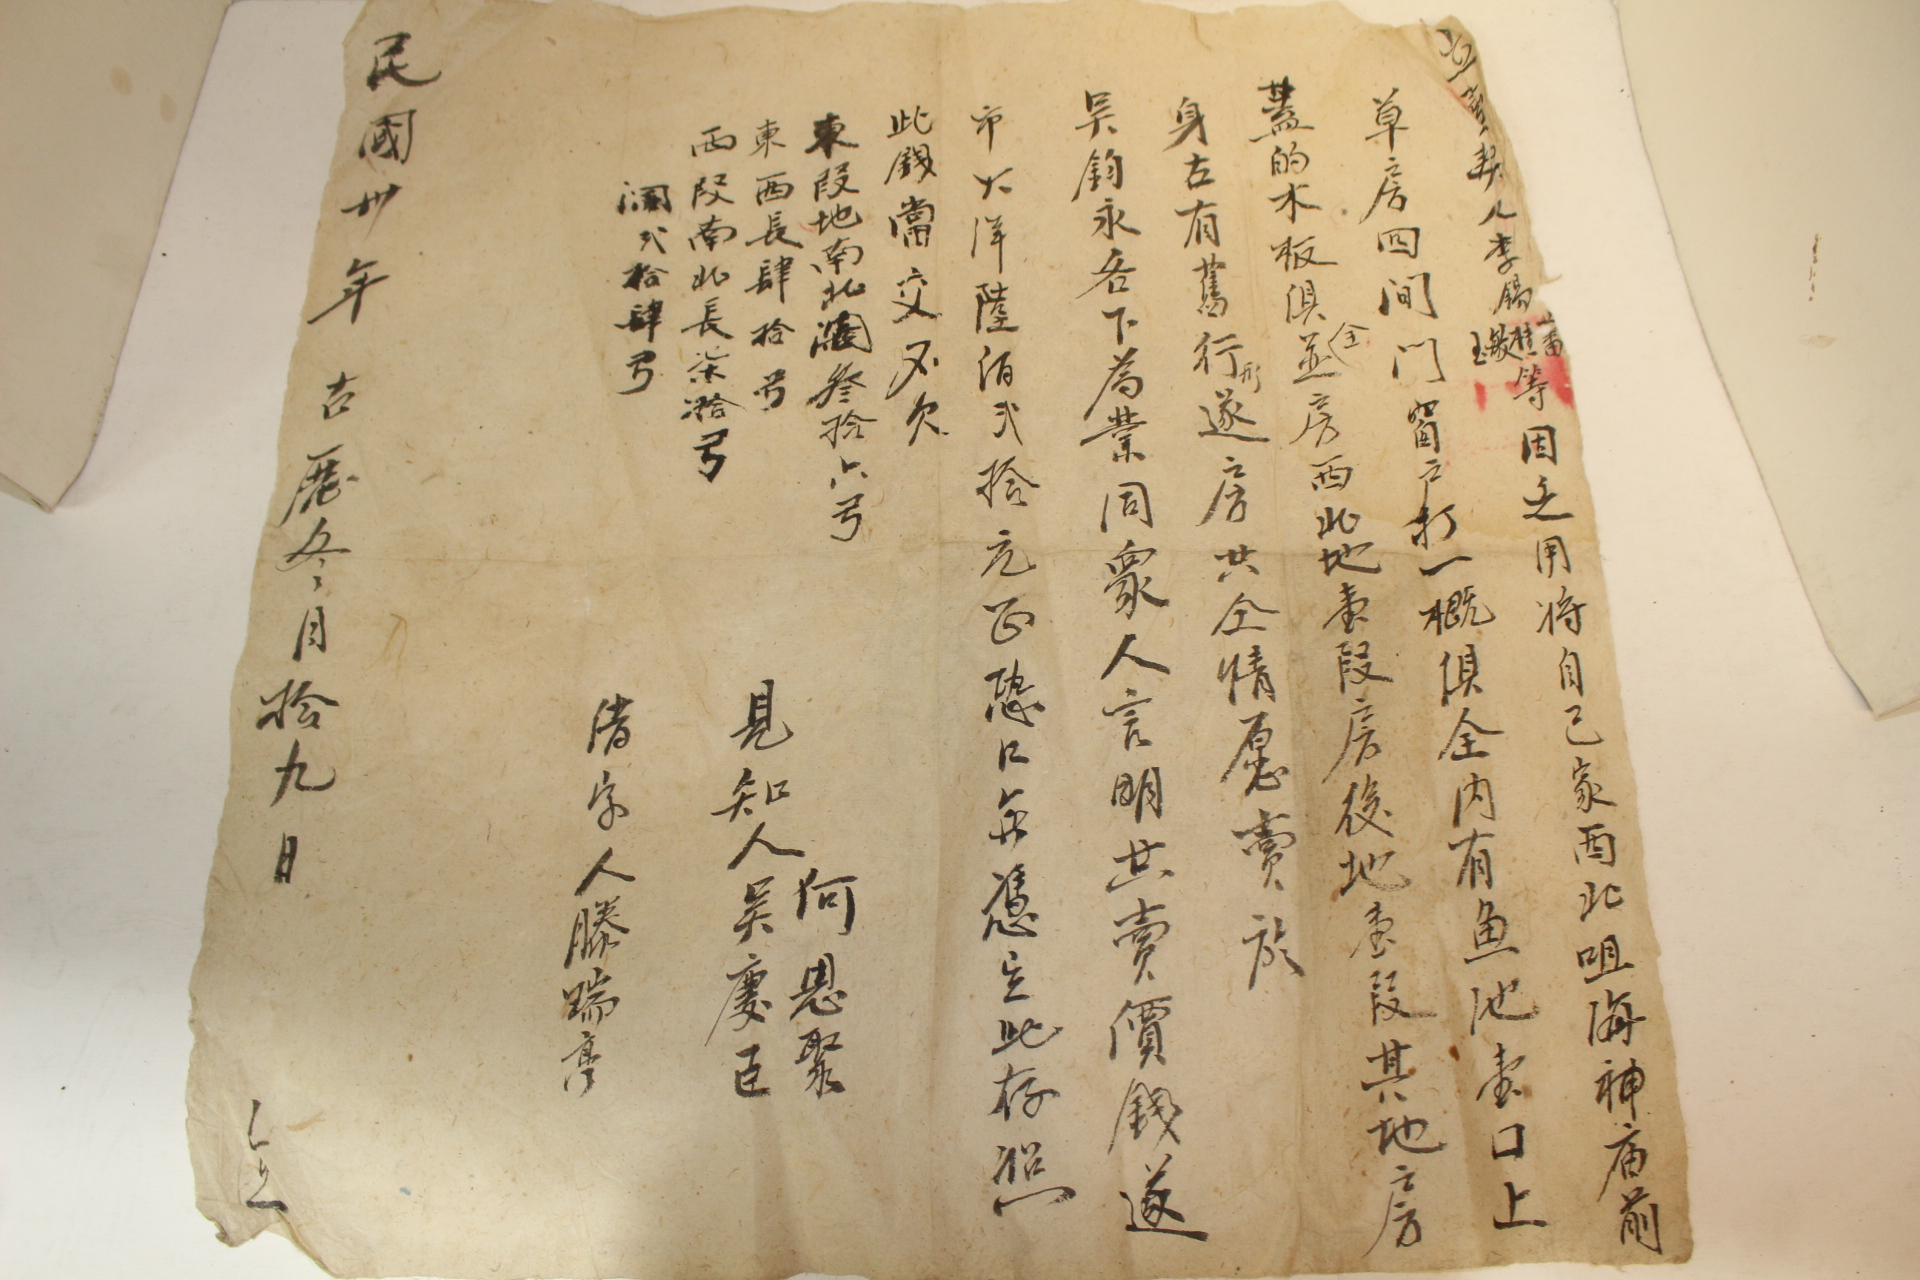 立賣契人李錫蕃桂等因乏用将自己家西北咀海神庙前
草房四间门窗户打一概俱全内有魚池壹口上
蓋的木板俱全並房西北地壹段房後地壹段其地房
身古有舊行形遂房共仝情愿賣於
吴鈞永名下為業同衆人言明共賣價錢遂
市大洋陸佰弍拾元正恐口無憑立此存照
此錢當交不欠
東段地南北濶叄拾六弓
東西長肆拾弓
西段南北長柒拾弓
濶弍拾肆弓
何恩聚
見知人吴慶臣
清字人滕瑞亭
民國卅年古歷冬月拾九日立